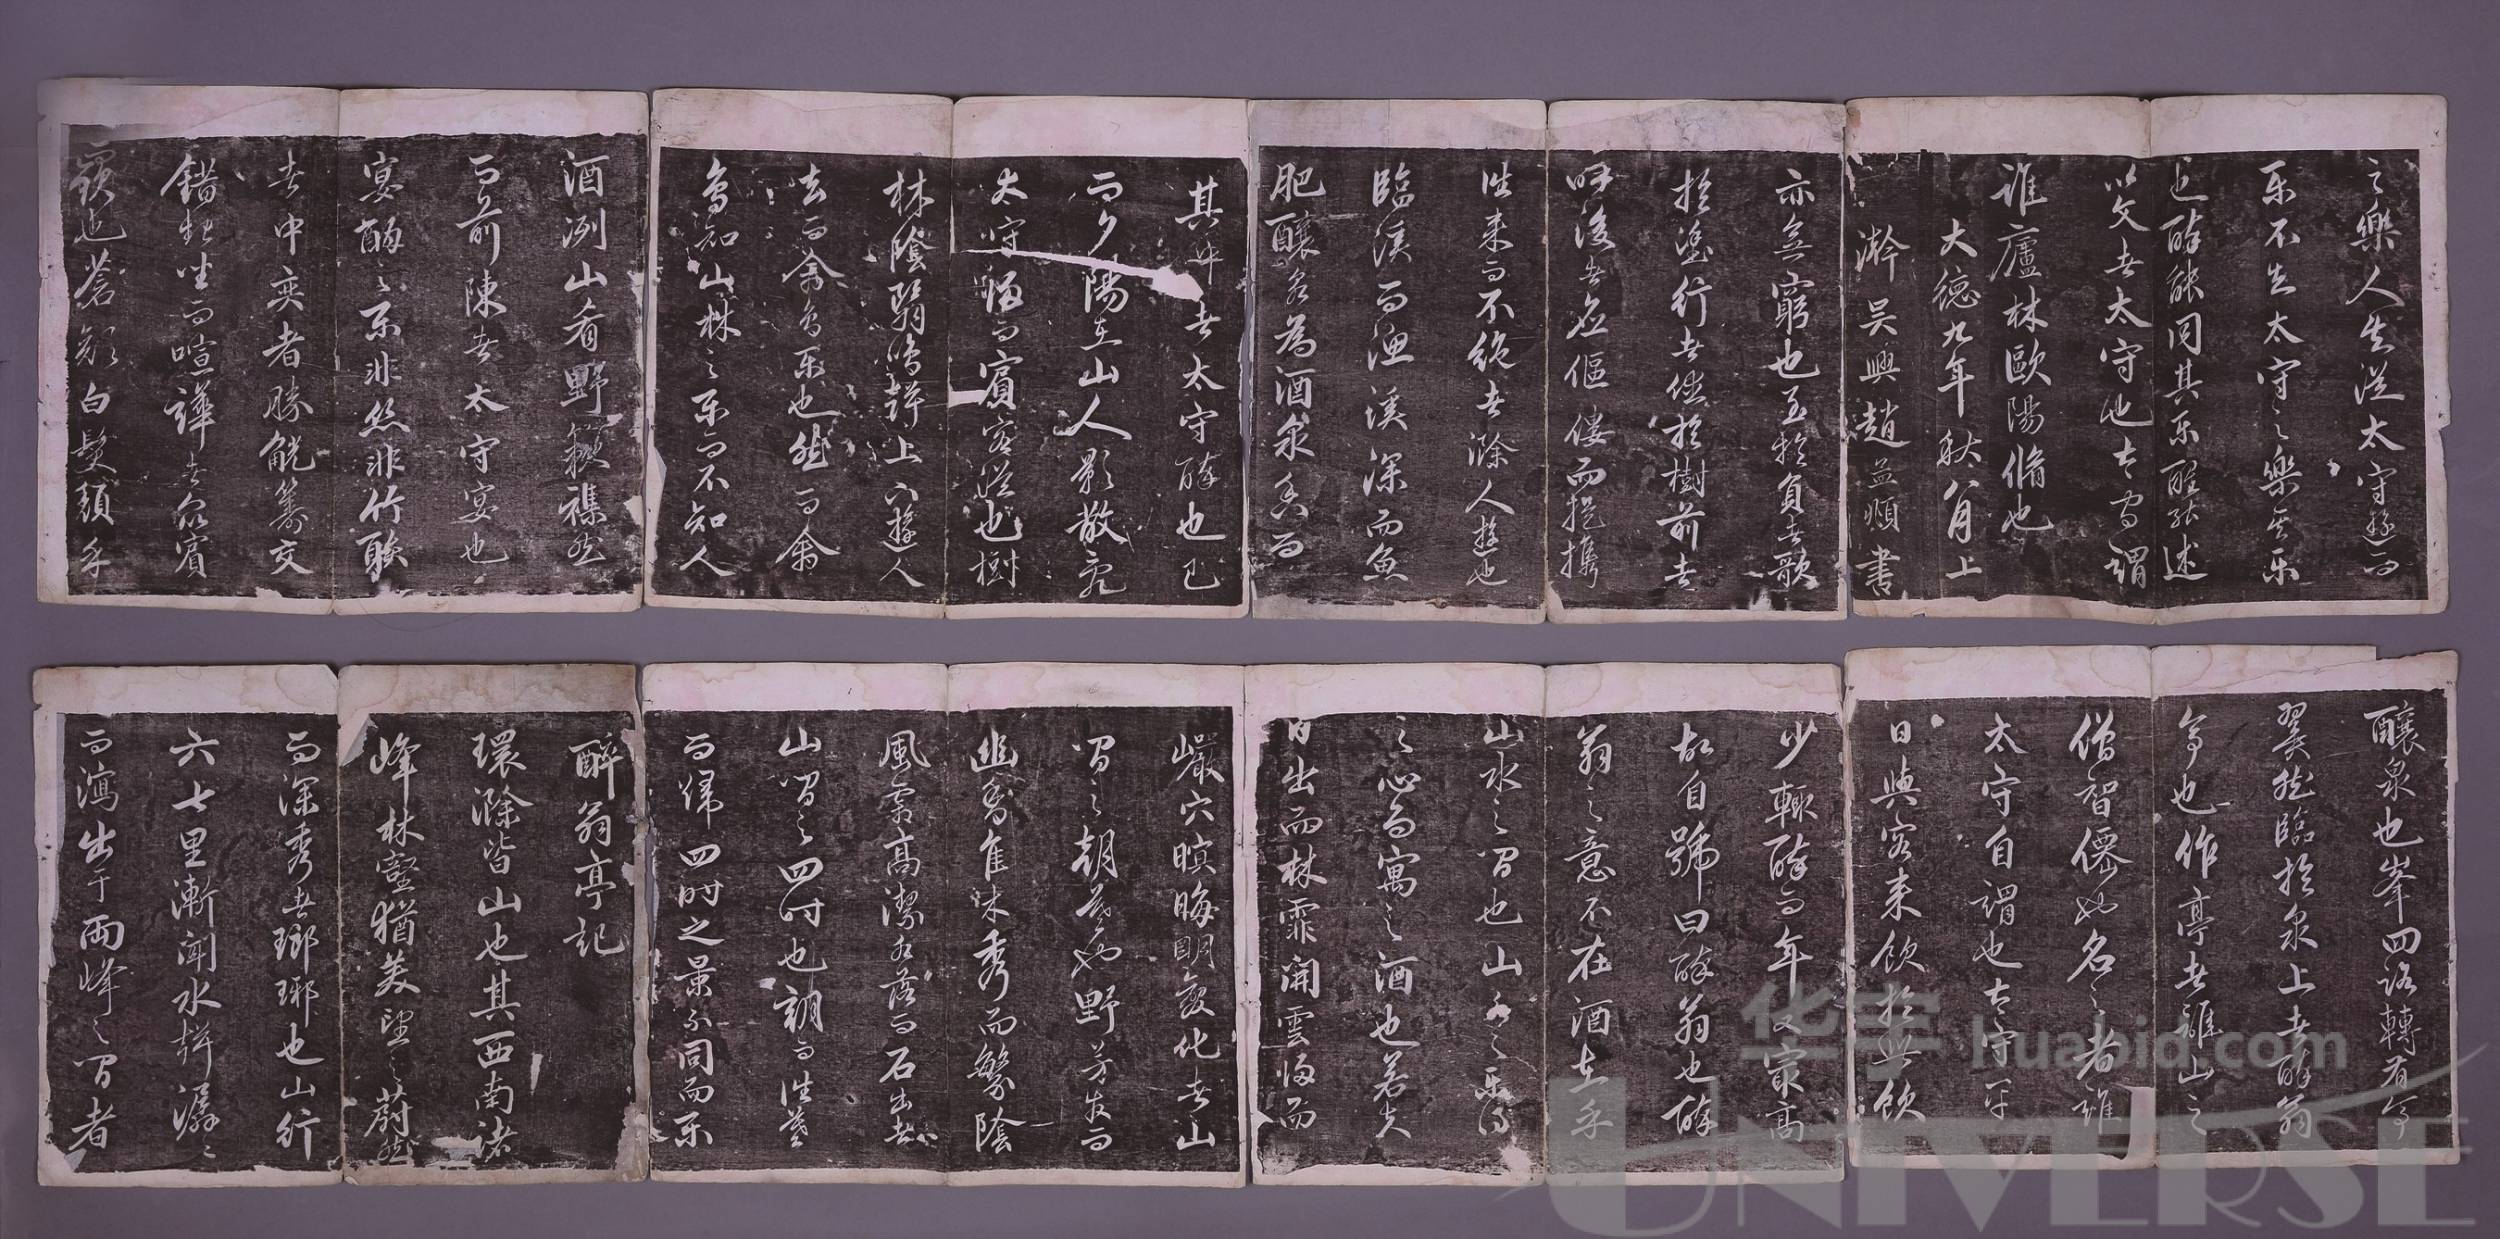 醉翁亭記
環滁皆山也其西南諸
峰林壑猶美望之蔚然
而深秀者瑯琊也山行
六七里漸聞水聲潺々
而瀉出于兩峰之間者
釀泉也峯回路轉有亭
翼然臨於泉上者醉翁
亭也作亭者誰山之
僧智僊也名之者誰
太守自謂也太守平
日與客来飲於此飲
少輒醉而年又最高
故自號曰醉翁也醉
翁之意不在酒在乎
山水之間也山水之樂得
之心而寓之酒也若夫
日出而林霏開雲歸而
巖穴暝晦明變化者山
間之朝暮也野芳發而
幽香佳木秀而繁陰
風霜高潔水落而石出者
山間之四時也朝而往暮
而歸四時之景不同而樂
亦無窮也至於負者歌
於塗行者休於樹前者
呼後者應傴僂而提攜
往来而不絶者滁人遊也
臨溪而漁溪深而魚
肥釀泉為酒泉香而
酒洌山肴野蔌襍然
而前陳者太守宴也
宴酣之樂非絲非竹
者中奕者勝觥籌交
錯起坐而喧譁者眾賓
懽也蒼顏白髮頹乎
其中者太守醉也已
而夕陽在山人影散亂
太守歸而賓客從也樹
林陰翳鳴聲上下遊人
去而禽鳥樂也然而禽
鳥知山林之樂而不知人
之樂人知從太守遊而
樂不知太守之樂其樂
也醉能同其樂醒能述
以文者太守也太守謂
誰廬林歐陽脩也
大德九年秋八月上
澣吴興趙孟頫書
华宇 huabid.com
UNIVERSE